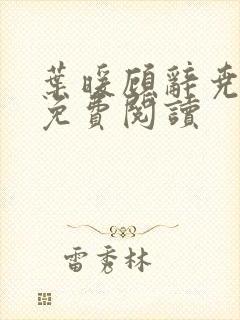 葉暖顧辭堯
免費閱讀
雷秀林